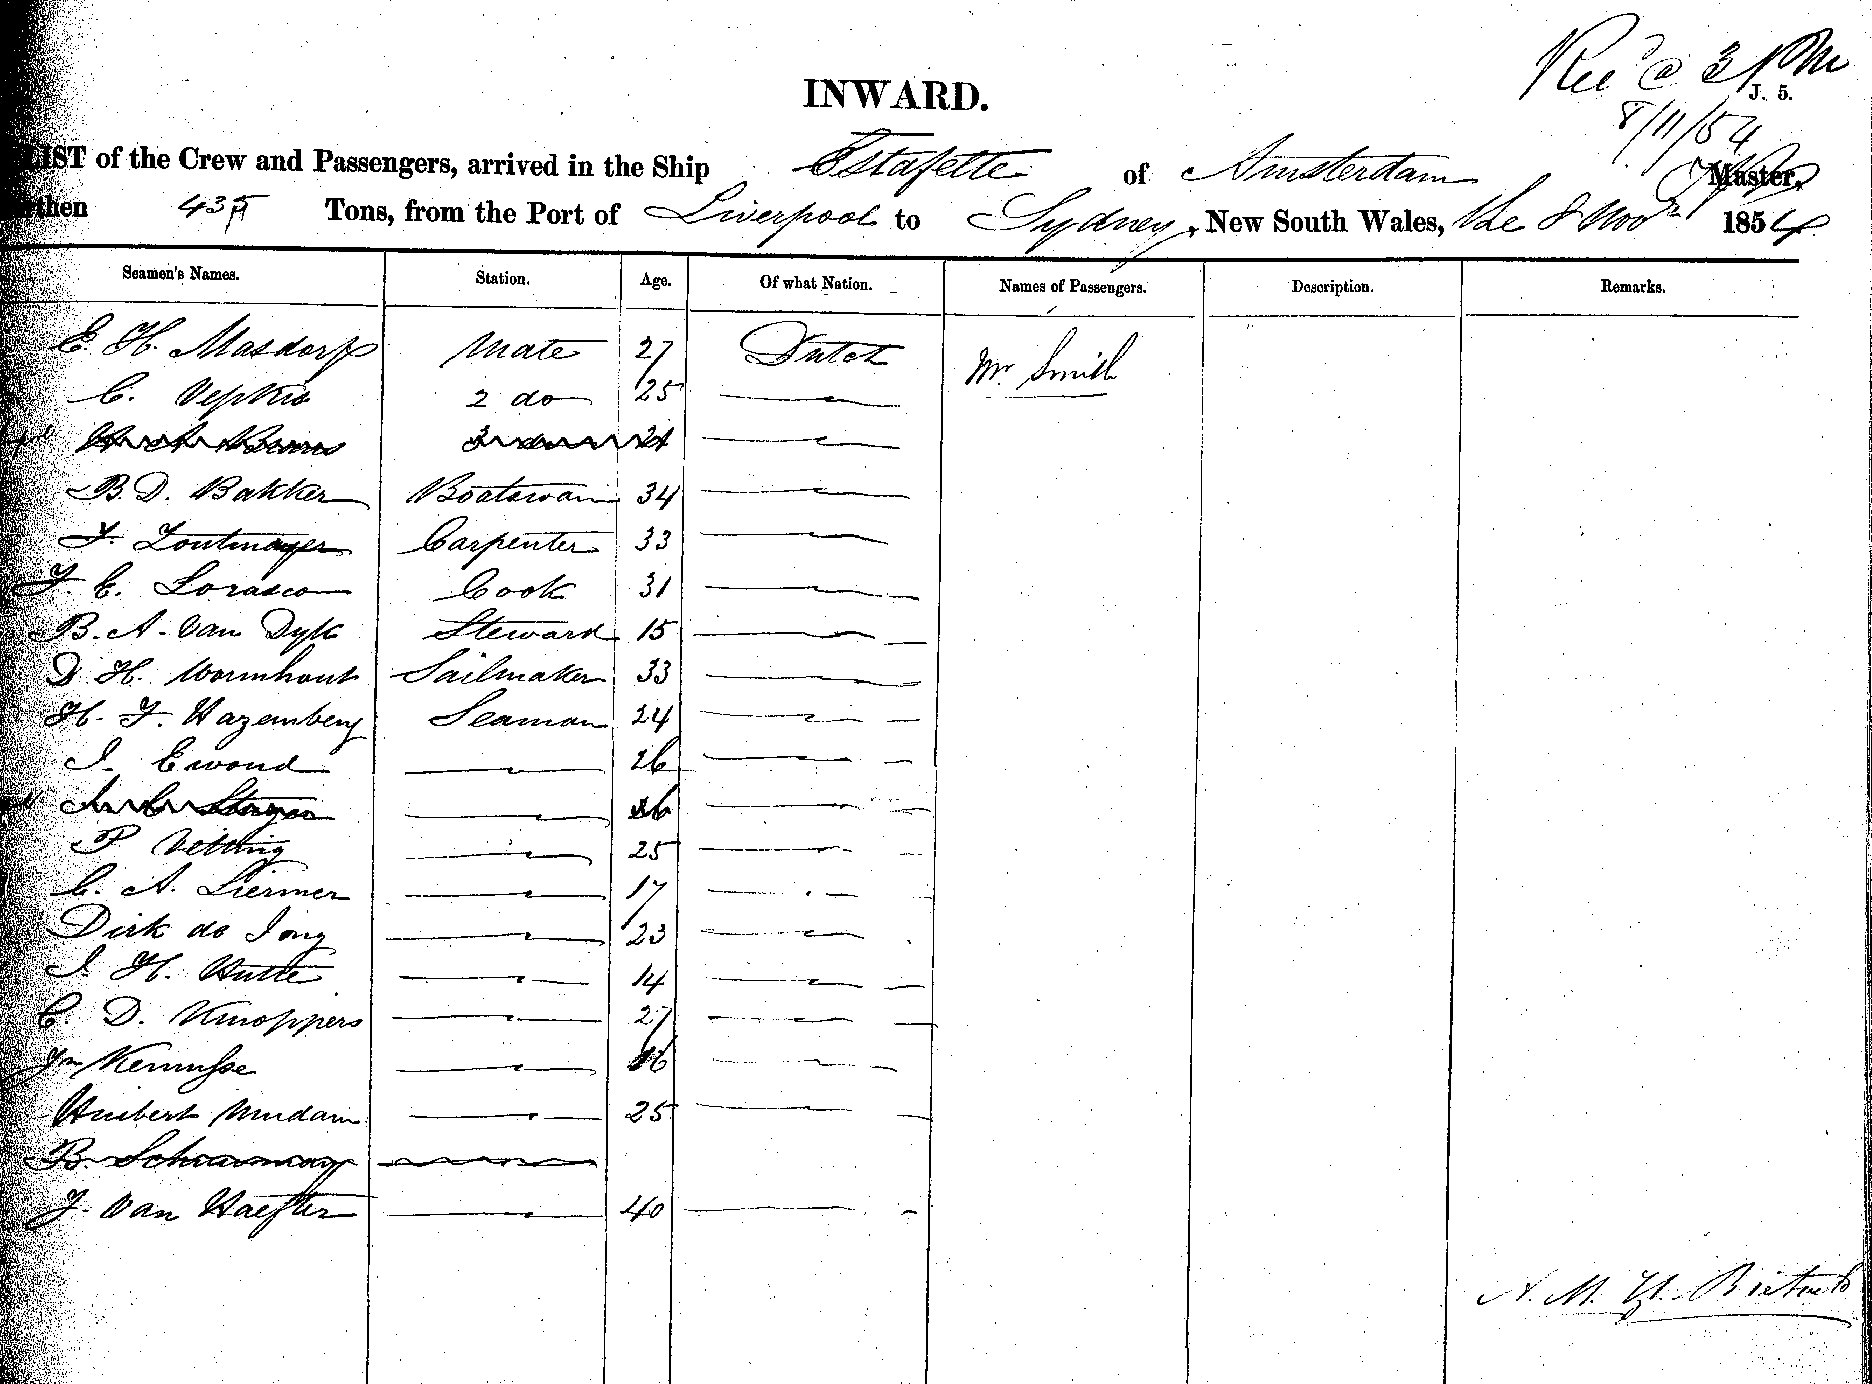 Rec'd @ 3 PM
J. 5.
8/11/54
INWARD.
LIST of the Crew and Passengers, arrived in the Ship Estafette of Amsterdam Master,
Burthen 435 Tons, from the Port of Liverpool to Sydney, New South Wales, the 8 Novr 1854
Seamen's Names. Station. Age. Of what Nation. Names of Passengers. Description. Remarks.
E. H. Masdorp Mate 27 Dutch Mr Smith
C. Vepkio 2 do 25 —
21 —
B. D. Bakker Boatswain 34 —
J. Zoutmayer Carpenter 33 —
J. C. Lorasco Cook 31 —
B. A. Van Dyk Steward 15 —
D H. Wormhout Sailmaker 33 —
H. J. Hazemberg Seaman 24 —
J. Ewoud — 26 —
— 26 —
P Vetting — 25 —
C. A. Liermer — 17 —
Dirk de Jong — 23 —
J. H. Hutte — 14 —
C. D. Knoppers — 27 —
— 16 —
Huibert Mudam — 25 —
B. —
J. Van Haeften — 40 —
A. M. H.